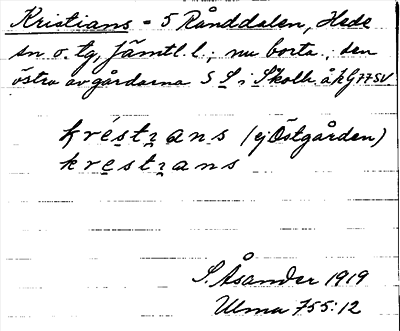 Kristians - 5 Rånddalen, Hede
sn o. tg, Jämtl. l.; nu borta; den
östra av gårdarna S S i Skolh. å kG 77 SV
krestrans (ej Östgården)
krestrans
S. Åsander 1919
Ulma 755:12